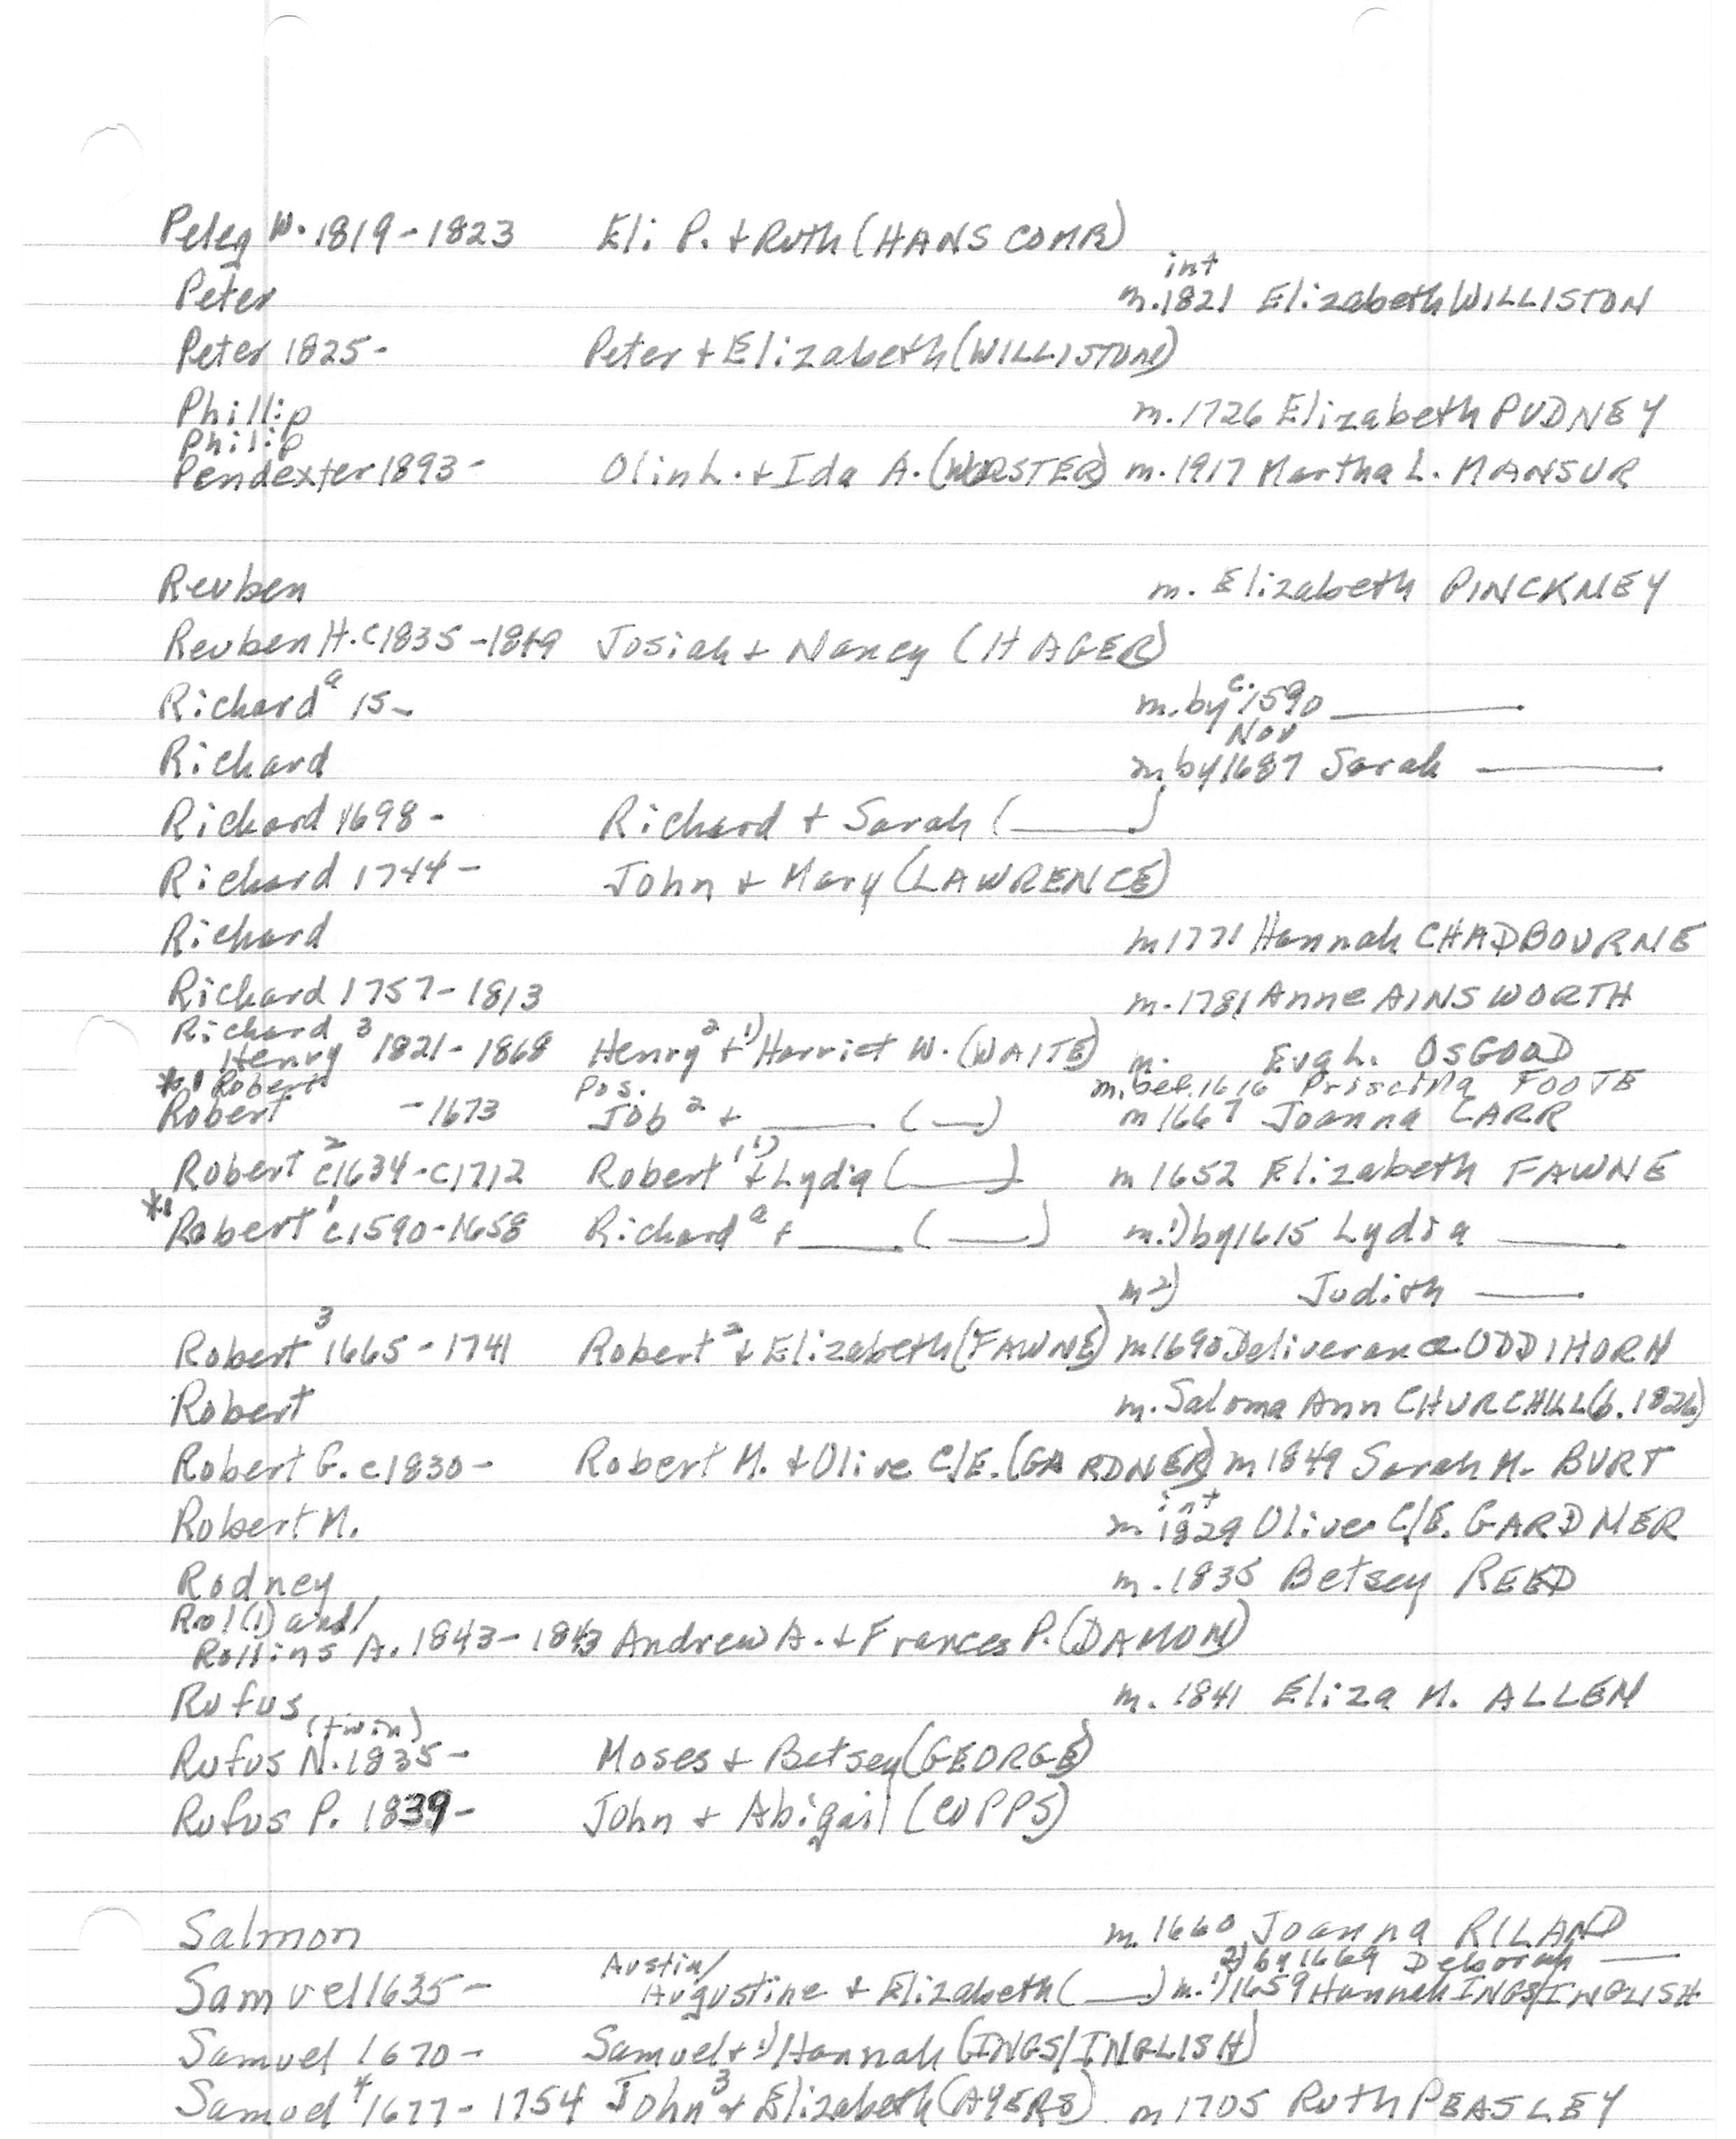 Peleg W. 1819-1823 Eli P. + Ruth (HANSCOMB)
int
Peter m. 1821 Elizabeth WILLISTON
Peter 1825- Peter + Elizabeth (WILLISTON)
Phillip m. 1726 Elizabeth PUDNEY
Philip
Pendexter 1893- Olin L. + Ida A. (WORSTER) m. 1917 Martha L. MANSUR
Reuben m. Elizabeth PINCKNEY
Reuben H. c1835-1849 Josiah + Nancy (HAGER)
Richard a 15- m. by c. 1590 ____
Nov
Richard m by 1687 Sarah ____
Richard 1698- Richard + Sarah (____)
Richard 1744- John + Mary (LAWRENCE)
Richard m 1771 Hannah CHADBOURNE
Richard 1757-1813 m. 1781 Anne AINSWORTH
Richard
Henry 3 1821-1868 Henry 2 + 1) Harriet W. (WAITE) m. Eva L. OSGOOD
*1 Robert m. bef. 1616 Priscilla FOOTE
pos.
Robert -1673 Job 2 + ____ (__) m 1667 Joanna CARR
Robert 2 c1634-c1712 Robert 1 1) + Lydia (____) m 1652 Elizabeth FAWNE
*1 Robert 1 c1590-1658 Richard a + ____ (____) m. 1) by 1615 Lydia ____
m 2) Judith ____
Robert 3 1665-1741 Robert 2 + Elizabeth (FAWNE) m 1690 Deliverance ODDIHORN
Robert m. Saloma Ann CHURCHILL (b. 1826)
Robert G. c1830- Robert M. + Olive C/E. (GARDNER) m 1849 Sarah M. BURT
int
Robert M. m. 1829 Olive C/E. GARDNER
Rodney m. 1835 Betsey REED
Rol(l)and/
Rollins A. 1843-1843 Andrew A. + Frances P. (DAMON)
Rufus m. 1841 Eliza M. ALLEN
(twin)
Rufus N. 1835- Moses + Betsey (GEORGE)
Rufus P. 1839- John + Abigail (COPPS)
Salmon m. 1660 Joanna RILAND
Austin/ 2) by 1669 Deborah ____
Samuel 1635- Augustine + Elizabeth (___) m. 1) 1659 Hannah INGS/INGLISH
Samuel 1670- Samuel + 1) Hannah (INGS/INGLISH)
Samuel 4 1677-1754 John 3 + Elizabeth (AYERS) m 1705 Ruth PEASLEY